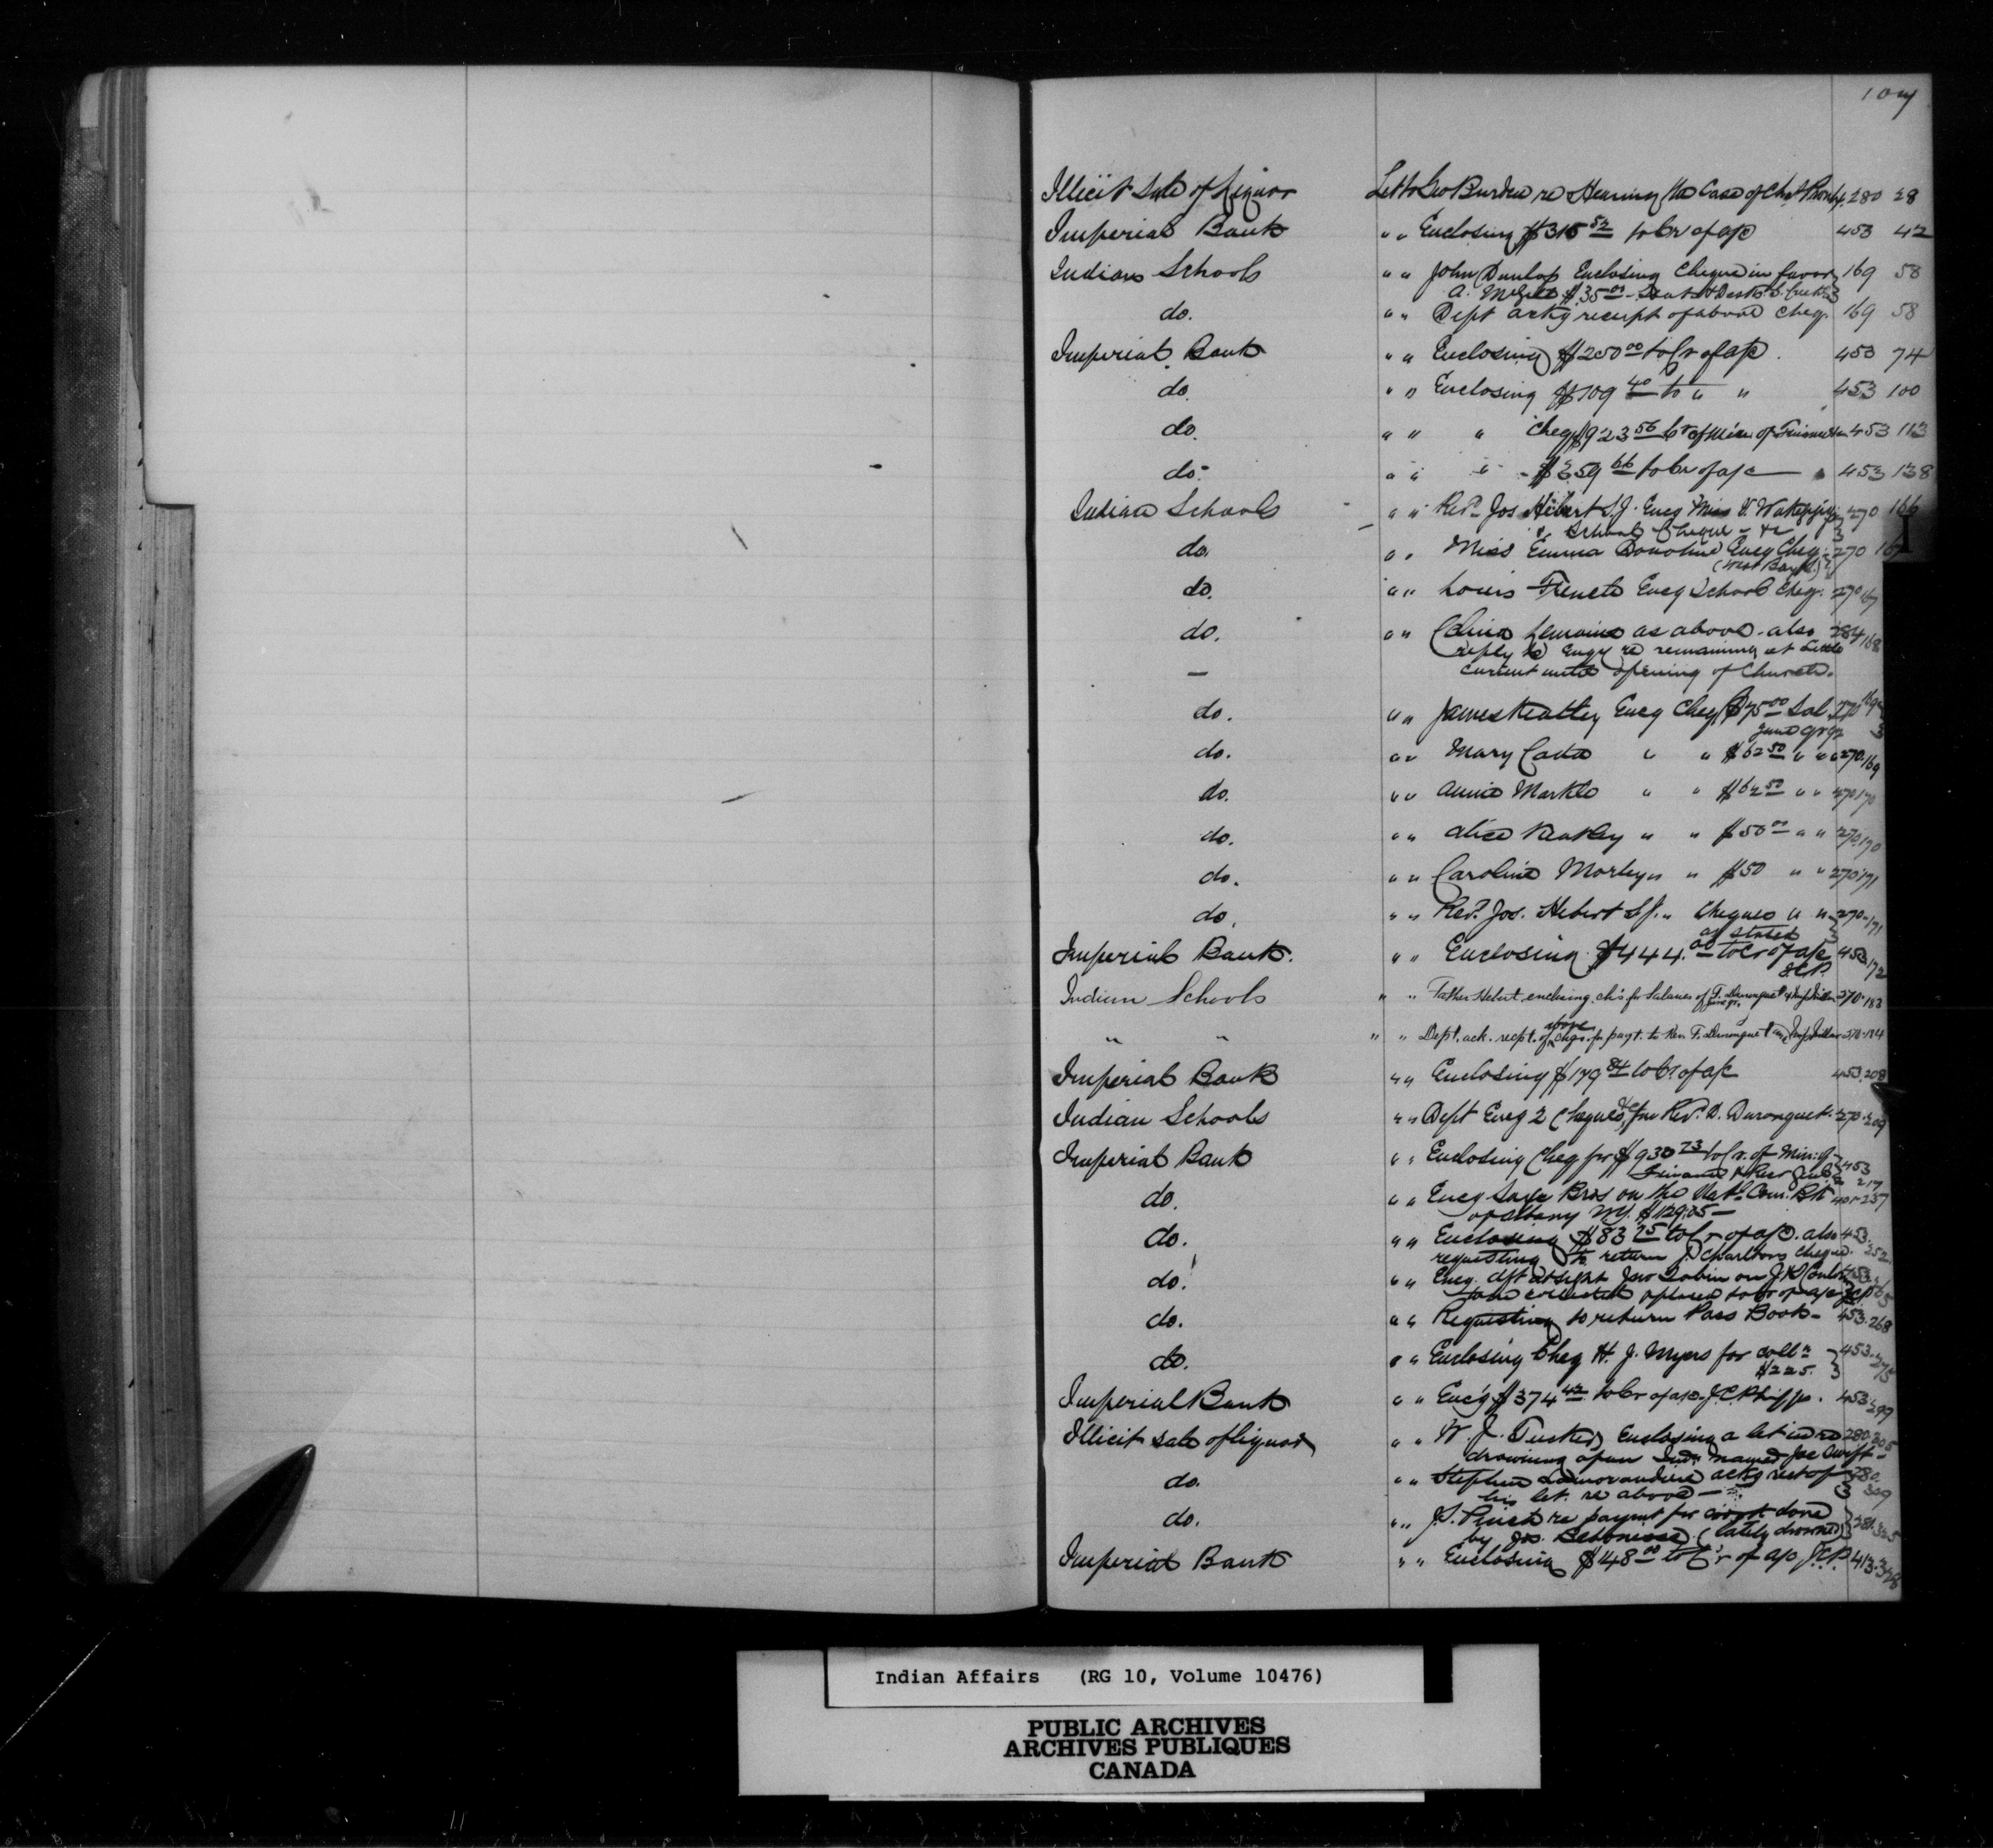 107
Illicit Sale of Liquor Let to Geo Burden re Hearing the Case of Chas 280 28
Imperial Bank " " Enclosing $315 52 to Cr of a/c 453 42
Indian Schools " " John Dunlop Enclosing Cheque in favor 169 58
A. McGill $35 00
do. " " Dept ackg receipt of above Cheq. 169 58
Imperial Bank " " Enclosing $250 00 to Cr of a/c. 453 74
do. " " Enclosing $109 40 to " " 453 100
do. " " " Cheq $923 56 Cr of Min of Finance 453 113
do. " " " $359 66 to Cr of a/c 453 138
Indian Schools " " Revd Jos Hébert S.J. Encg Miss 270 166
School Cheque &c
do. " " Miss Emma Donohue Encg Cheq. 270 167
(West Bay)
do. " " Louis Encg School Cheq. 270 167
do. " " Lemoine as above. also 284 168
reply to Enqy re remaining at Little
— Current until opening of Church.
do. " " James Keatley Encg Cheq $75 00 Sal. 270 169
June qr 92
do. " " Mary Cada " " $62 50 " " " 270. 169
do. " " Annie Markle " " $62 50 " " 270 170
do. " " Alice Keatley " " $50 00 " " 270. 170
do. " " Caroline Morley " " $50 " " 270 171
do. " " Revd. Jos. Hebert S.J. " Cheques " " 270. 171
as stated
Imperial Bank. " " Enclosing $444. 00 to Cr of a/c 453. 172
J.C.P.
Indian Schools " " Father Hebert enclosing chs for Salaries of 270. 183
" " " " Dept. ack. recpt. of above chqs. for payt. to Rev. 184
Imperial Bank " " Enclosing $179 84 to Cr. of a/c 453. 208
Indian Schools " " Dept Encg 2 Cheques &c from Rev. D. Duronquet. 270. 209
Imperial Bank " " Enclosing Cheq for $930 73 to Cr. of Min: of 453
Finance & Recr Genl 217
do. " " Encg Saxe Bros on the Natl. Com: Bk 401 237
of Albany N.Y. $129.05
do. " " Enclosing $83 75 to Cr of a/c. also 453. 252
requesting to return J. Charltons Cheque.
do. " " Encg. dft at sight Jno Tobin on 453.
to be collected & placed to Cr of a/c JCP
do. " " Requesting to return Pass Book 453. 268
do. " " Enclosing Cheq H. J. Myers for colln 453. 275
$225.
Imperial Bank " " Enc'g $374 42 to Cr of a/c J.C. Phipps. 453. 299
Illicit sale of liquor " " W. J. Tucker Enclosing a let in re 280. 305
drowning of an Indn named Joe Swift
do. " " Stephen Lamorandiere ackg rect of 280. 309
his let. re above
do. " " J.S. re paymt for work done 281. 325
by Jos. (lately drowned)
Imperial Bank " " Enclosing $148 00 to Cr of a/c J.C.P. 413. 328
I
Indian Affairs (RG 10, Volume 10476)
PUBLIC ARCHIVES
ARCHIVES PUBLIQUES
CANADA